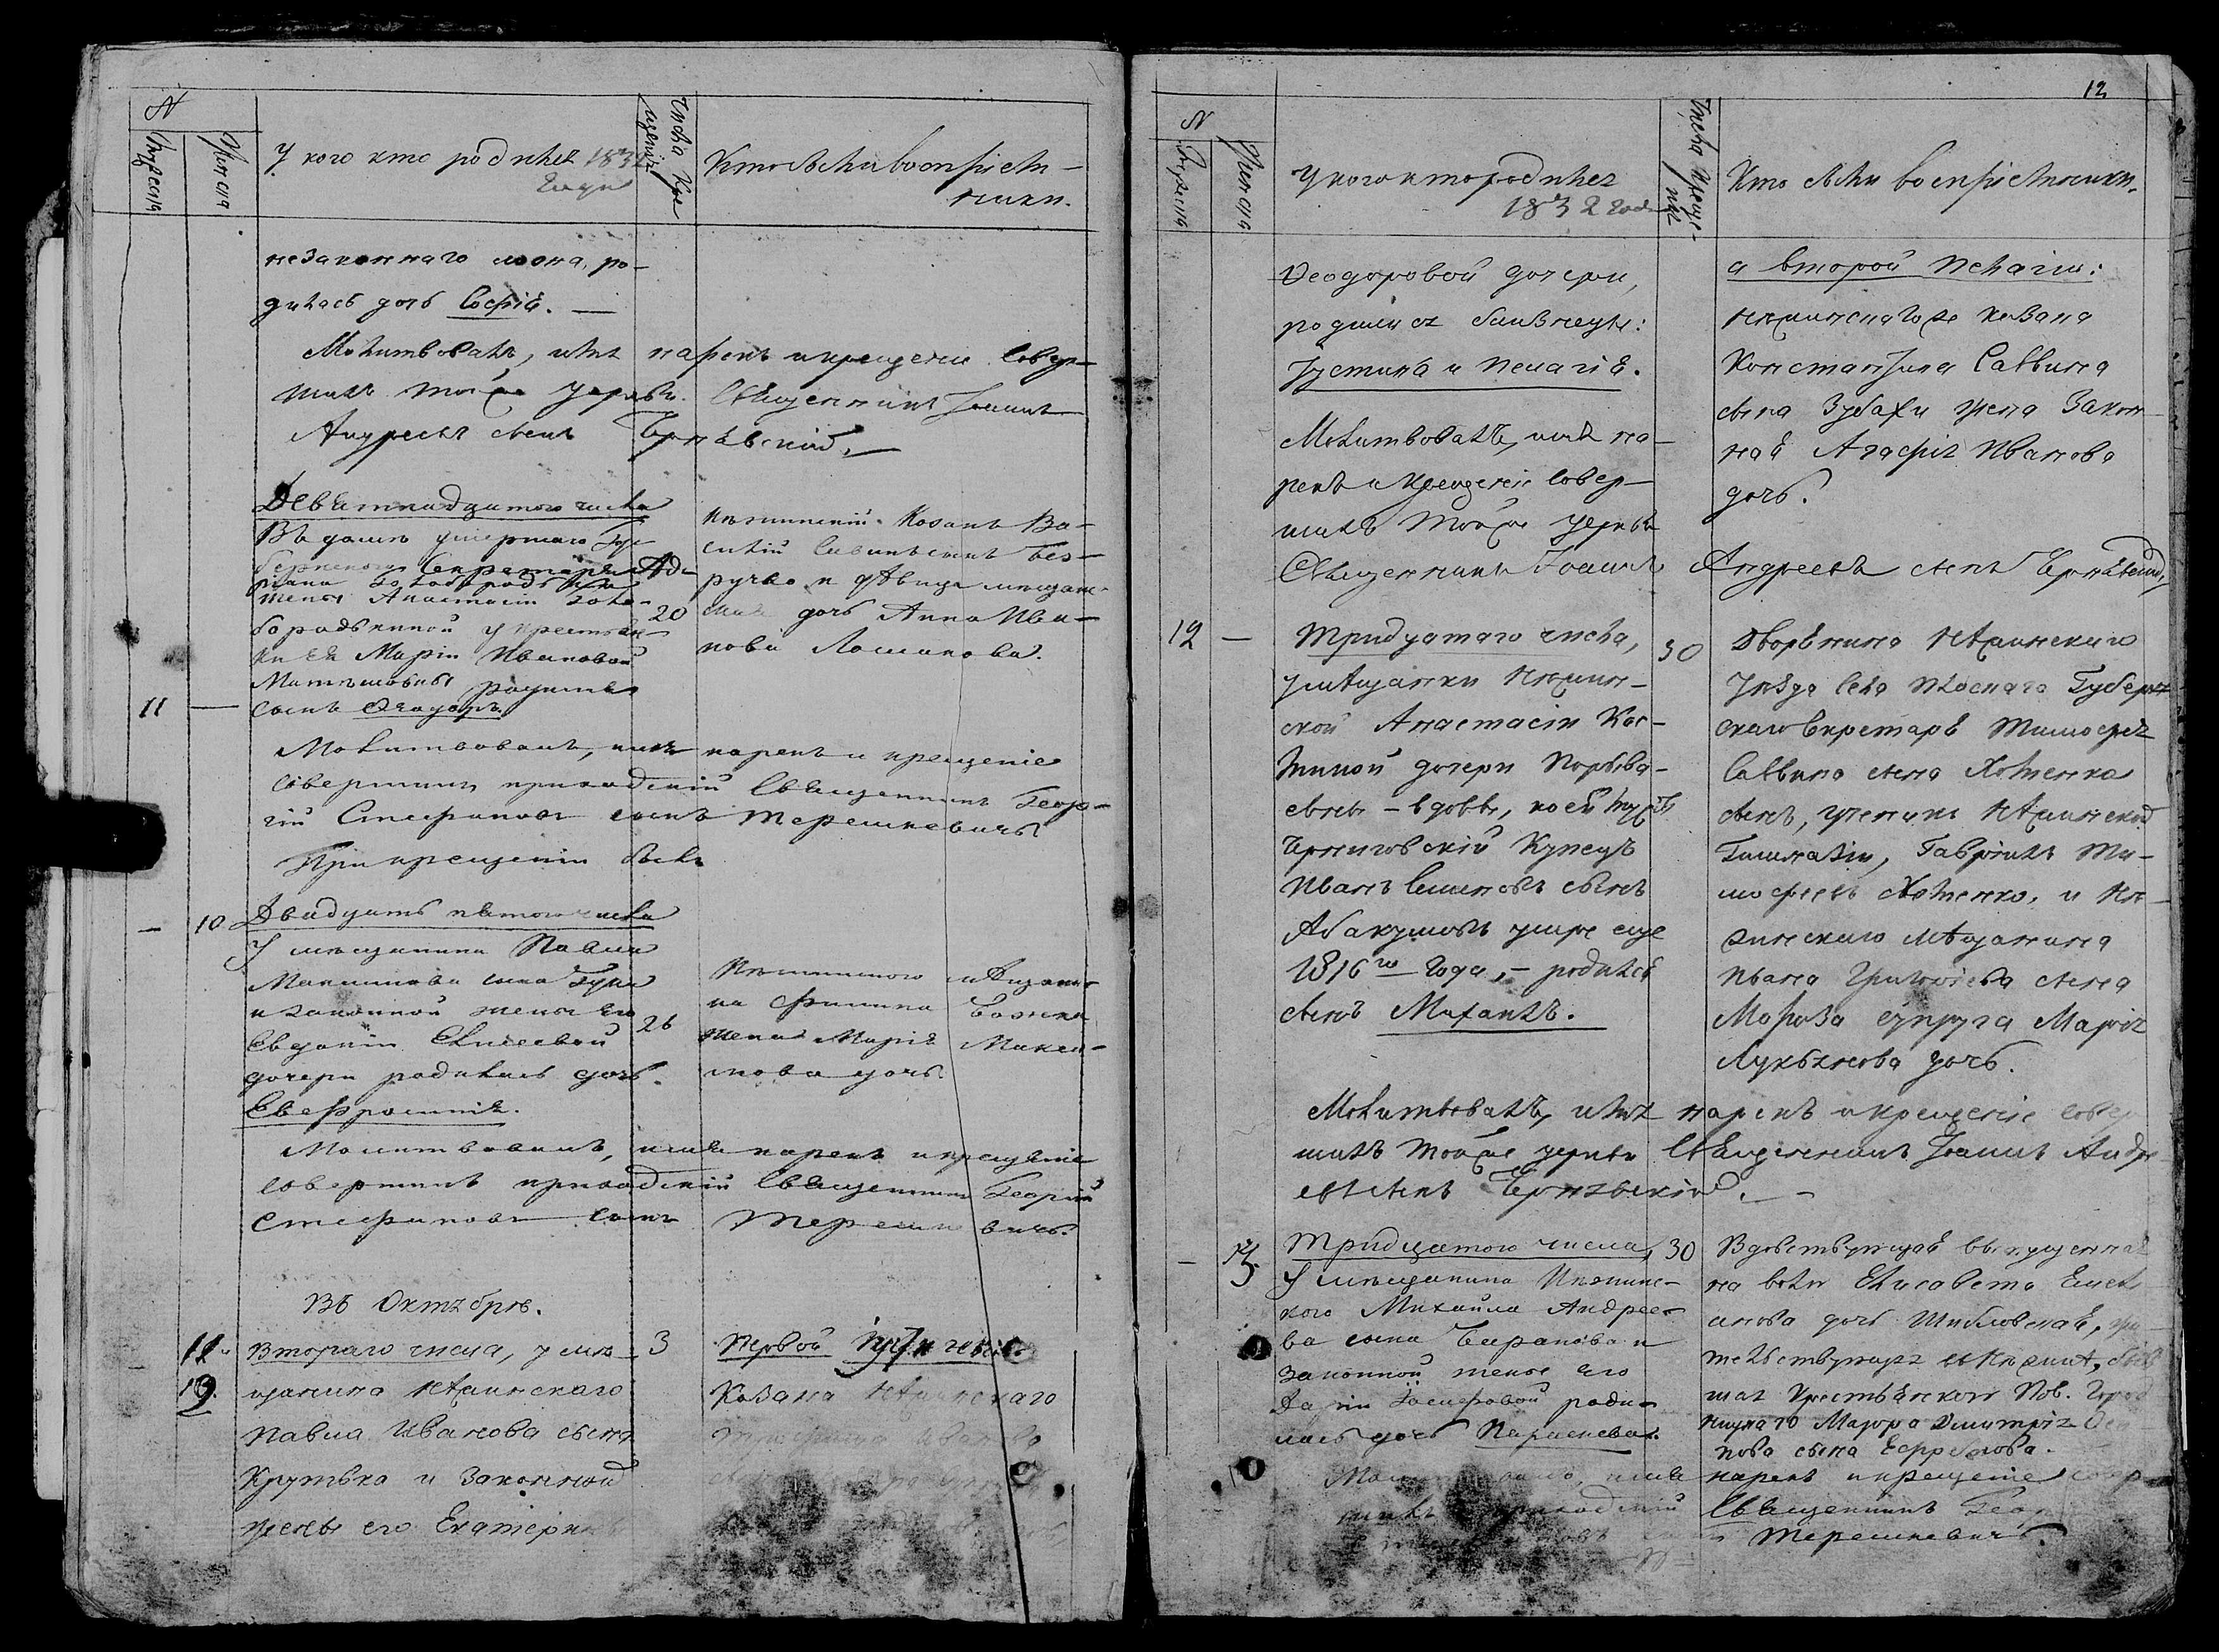 N
Мужеска
Женска
У кого кто родился 1832
Года
Числа Кре
щенія
Кто были воспріем-
ники.
незаконнаго ложа, ро-
дилась дочь Софія. —
Молитвовалъ, имя нарекъ и крещеніе совер-
шилъ тойже церкви Священникъ Іоаннъ
Андреевъ сынъ Чернявскій. —
Девятнадцатого числа
Въ домѣ умершаго Гу-
бернского Секретаря
жены Анастасіи Золо-
20
бородькиной у крестьян-
ки ея Маріи Ивановой
родился
11 —
сынъ Ѳеодоръ.
Нѣжинскій Козакъ Ва-
силій Савинъ сынъ Без-
ручко и дѣвица мѣщан-
дочь Анна Ива-
нова Лошакова.
Молитвовалъ, имя нарекъ и крещеніе
совершилъ приходскій Священникъ Геор-
гій Стефановъ сынъ Терешкевичъ
При крещеніи были
— 10
Двадцать пятого числа
У мѣщанина Павла
Максимова сына
и законной жены его
26
Евдокіи Елисеевой
дочери родилась дочь
Евфросинія.
Нѣжинского мѣщани-
на Филиппа
жена Марія Макси-
мова дочь.
Молитвовалъ, имя нарекъ и крещеніе
совершилъ приходскій Священникъ Георгій
Стефановъ сынъ Терешкевичъ.
Въ Октябрѣ.
11.
12.
Втораго числа, у мѣ-
3
щанина Нѣжинскаго
Павла Иванова сына
Крутька и Законной
жены его Екатерины
Первой
Козака Нѣжинскаго
12
N
Мужеска
Женска
У кого кто родился
1832 года
Числа Креще-
нія
Кто были воспріемники.
Ѳеодоровой дочери,
родились близнецы:
Іустина и Пелагія.
Молитвовалъ, имя на-
рекъ и Крещеніе совер-
шилъ тойже церкви
Священникъ Іоаннъ Андреевъ сынъ Чернявскій.
а второй Пелагіи:
Нѣжинскагоже козака
Константина Саввина
сына Зубахи жена Закон-
ная Агафія Иванова
дочь.
12 —
Тридцатаго числа,
30
у мѣщанки Нѣжин-
ской Анастасіи Кос-
миной дочери
— вдовы, коей мужъ
Черниговскій Купецъ
Иванъ Семеновъ сынъ
Абакумовъ умре еще
1816го Года, — родился
сынъ Михаилъ.
Дворянина Нѣжинскаго
Уѣзда села Плоскаго Губерн-
скаго Секретаря Тимофея
Саввина сына Хоменка
сынъ, ученикъ Нѣжинской
Гимназіи, Гавріилъ Ти-
мофеевъ Хоменко, и Нѣ-
жинскаго мѣщанина
Ивана Григоріева сына
Мороза супруга Марія
Лукьянова дочь.
Молитвовалъ, имя нарекъ и крещеніе совер
шилъ тойже церкви Священникъ Іоаннъ Андре
евъ сынъ Чернявскій. —
— 13.
Тридцатого числа,
30
У мѣщанина Нѣжинс-
кого Михайла Андрее-
ва сына Баранова и
законной жены его
Іосифовой роди-
лась дочь Параскевая.
Вдовствующая выпущенная
на волю Елисавета Емель
янова дочь Шибловская, жи
тельствующая въ Нѣжинѣ, быв
шая Крестьянского Пов. Город
ничаго Маіора Димитрія
пова сына
имя нарекъ и крещеніе совер
шилъ приходскій Священникъ Геор
Терешкевичъ.